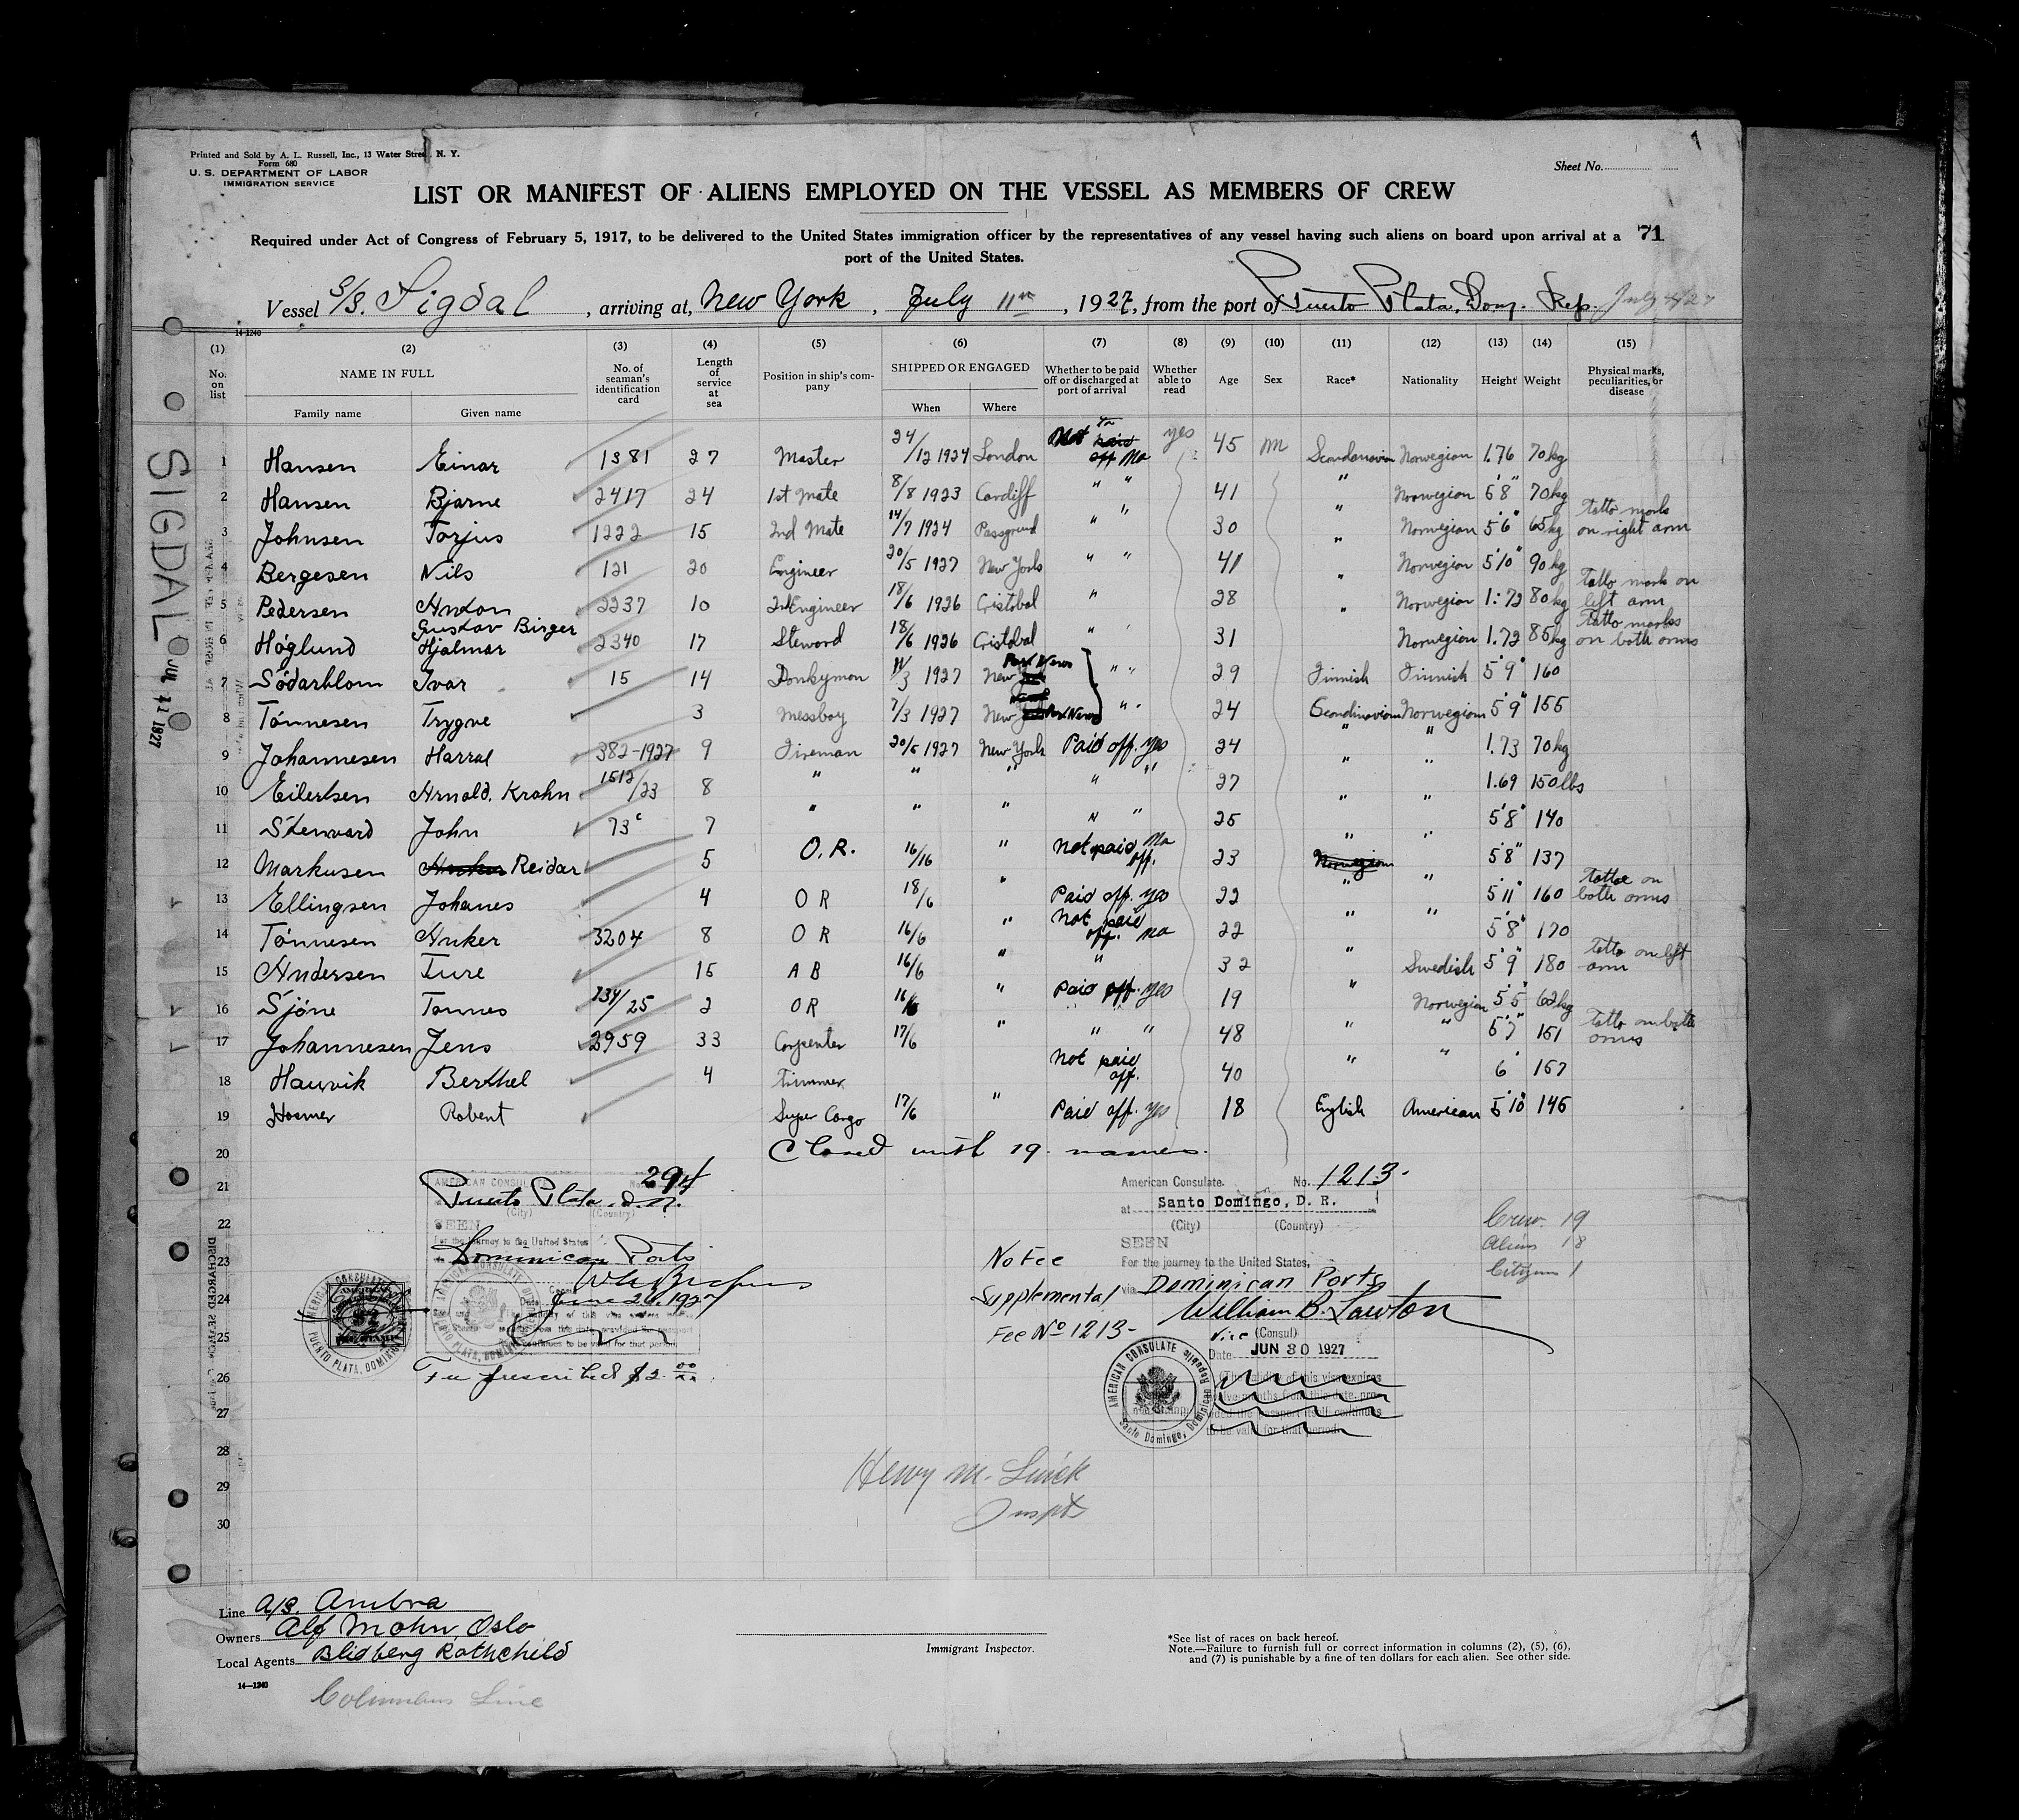 Printed and Sold by A. L. Russell, Inc., 13 Water Street, N. Y.
Form 680
U. S. DEPARTMENT OF LABOR
IMMIGRATION SERVICE
Sheet No.
LIST OR MANIFEST OF ALIENS EMPLOYED ON THE VESSEL AS MEMBERS OF CREW
Required under Act of Congress of February 5, 1917, to be delivered to the United States immigration officer by the representatives of any vessel having such aliens on board upon arrival at a 71
port of the United States.
Vessel S/S. Sigdal, arriving at, New York, July 11th, 1927, from the port of Puerto Plata, Dom. Rep. July
14-1240
(1) (2) (3) (4) (5) (6) (7) (8) (9) (10) (11) (12) (13) (14) (15)
No. on list NAME IN FULL No. of seaman's identification card Length of service at sea Position in ship's company SHIPPED OR ENGAGED Whether to be paid off or discharged at port of arrival Whether able to read Age Sex Race* Nationality Height Weight Physical marks, peculiarities, or disease
Family name Given name When Where
1 Hansen Einar 1381 27 Master 24/12 1924 London Not No yes 45 m Scandinavian Norwegian 1.76 70kg
2 Hansen Bjarne 2417 24 1st Mate 8/8 1923 Cardiff " " 41 " Norwegian 5'8" 70kg
3 Johnsen Torjus 1222 15 2nd Mate 14/7 1924 " " 30 " Norwegian 5'6" 65kg Tatto mark on right arm
4 Bergesen Nils 121 20 Engineer 20/5 1927 New York " " 41 " Norwegian 5'10" 90kg
5 Pedersen Anton 2237 10 2nd Engineer 18/6 1926 Cristobal " 28 " Norwegian 1.72 80kg Tatto mark on left arm
6 Höglund Gustav Birger Hjalmar 2340 17 Steward 18/6 1926 Cristobal " 31 " Norwegian 1.72 85kg Tatto marks on both arms
7 Södarblom Ivar 15 14 Donkyman 11/3 1927 New Port News " " 29 Finnish Finnish 5'9" 160
8 Tönnesen Trygve 3 Messboy 7/3 1927 New Port News " " 24 Scandinavian Norwegian 5'9" 155
9 Johannesen Harral 382-1927 9 Fireman 20/5 1927 New York Paid off. yes 24 " " 1.73 70kg
10 Eilertsen Arnold. Krohn 1512/23 8 " " " " " 27 " " 1.69 150lbs
11 Stenvard John 73c 7 " " " " " 25 " " 5'8" 140
12 Markusen Reidar 5 O.R. 16/16 " Not paid off. No 23 " " 5'8" 137
13 Ellingsen Johanes 4 O R 18/6 " Paid off. yes 22 " " 5'11" 160 Tattoe on both arms
14 Tönnesen Anker 3204 8 O R 16/6 " Not paid off. No 22 " " 5'8" 170
15 Andersen Ture 15 A B 16/6 " " 32 " Swedish 5'9" 180 Tatto on left arm
16 Sjöne Tonnes 734/25 2 O R 16/6 " Paid off. yes 19 " Norwegian 5'5" 62kg
17 Johannesen Jens 2959 33 Carpenter 17/6 " " " 48 " " 5'7" 151 Tatto on both arms
18 Hauvik Berthel 4 Trimmer Not paid off. 40 " " 6' 157
19 Hosmer Robert Super Cargo 17/6 " Paid off. yes 18 English American 5'10" 145
20 Closed with 19. names.
21
22
23
24
25
26
27
28
29
30
SIGDAL
JUL 11 1927
AMERICAN CONSULATE No. 294
Puerto Plata, D.R.
(City) (Country)
SEEN
For the journey to the United States
Dominican Ports
Date June 26, 1927
Fee prescribed $2.00
AMERICAN CONSULATE PUERTO PLATA, DOMINICAN
American Consulate. No. 1213-
at Santo Domingo, D. R.
(City) (Country)
SEEN
For the journey to the United States,
via Dominican Ports
William B. Lawton
Vice (Consul)
Date JUN 30 1927
No Fee
Supplemental
Fee No 1213-
AMERICAN CONSULATE Santo Domingo, Dominican Republic
Crew. 19
Aliens 18
Citizen 1
Henry M.
Inspt
Line A/S. Ambra
Owners Alf Mohn, Oslo
Local Agents Blidberg Rothchild
14-1240
Columbus Line
Immigrant Inspector.
*See list of races on back hereof.
Note.—Failure to furnish full or correct information in columns (2), (5), (6),
and (7) is punishable by a fine of ten dollars for each alien. See other side.